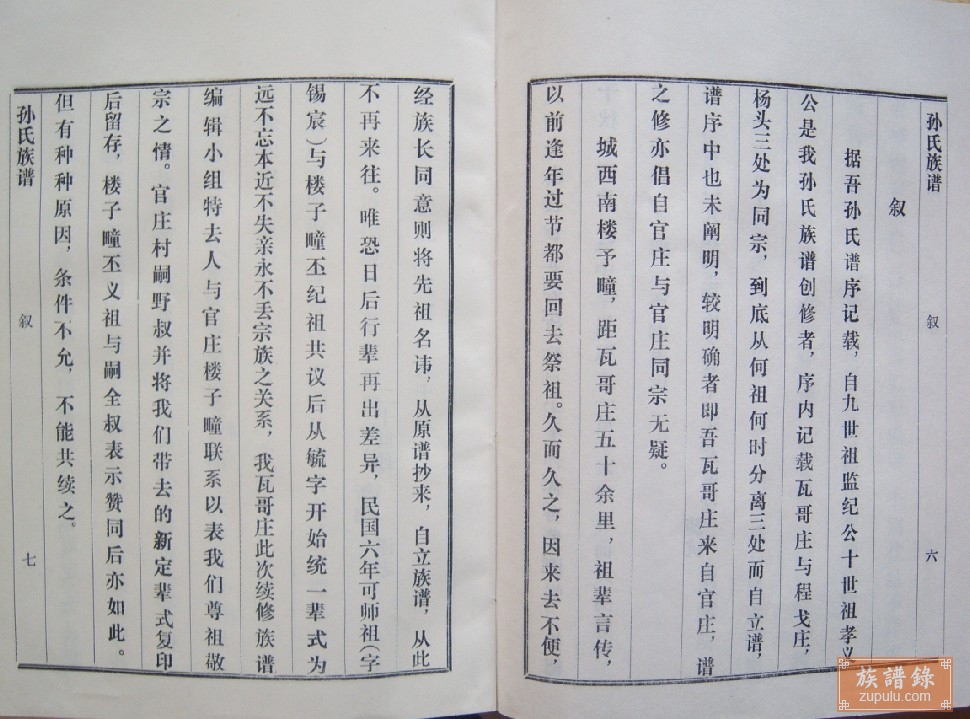 孙氏族谱
叙
六
叙
据吾孙氏谱序记载，自九世祖监纪公十世祖孝义
公是我孙氏族谱创修者，序内记载瓦哥庄与程戈庄，
杨头三处为同宗，到底从何祖何时分离三处而自立谱，
谱序中也未阐明，较明确者即吾瓦哥庄来自官庄，谱
之修亦倡自官庄与官庄同宗无疑。
城西南楼予疃，距瓦哥庄五十余里，祖辈言传，
以前逢年过节都要回去祭祖。久而久之，因来去不便，
经族长同意则将先祖名讳，从原谱抄来，自立族谱，从此
不再来往。唯恐日后行辈再出差异，民国六年可师祖（字
锡宸）与楼子疃丕纪祖共议后从毓字开始统一辈式为
远不忘本近不失亲永不丢宗族之关系，我瓦哥庄此次续修族谱
编辑小组特去人与官庄楼子疃联系以表我们尊祖敬
宗之情。官庄村嗣野叔并将我们带去的新定辈式复印
后留存，楼子疃丕义祖与嗣全叔表示赞同后亦如此。
但有种种原因，条件不允，不能共续之。
孙氏族谱
叙
七
族譜錄
zupulu.com